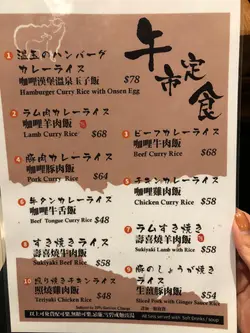 午市定食
1 温玉のハンバーグ
カレーライス
咖喱漢堡溫泉玉子飯 $78
Hamburger Curry Rice with Onsen Egg
2 ラム肉カレーライス
咖喱羊肉飯
Lamb Curry Rice $68
3 ビーフカレーライス
咖喱牛肉飯
Beef Curry Rice $68
4 豚肉カレーライス
咖喱豚肉飯
Pork Curry Rice $64
5 チキンカレーライス
咖喱雞肉飯
Chicken Curry Rice $58
6 牛タンカレーライス
咖喱牛舌飯
Beef Tongue Curry Rice $58
7 ラムすき焼き
壽喜燒羊肉飯
Sukiyaki Lamb with Rice $58
8 すき焼きライス
壽喜燒牛肉飯
Sukiyaki Beef Rice $58
9 豚のしょうが焼き
ライス
生薑豚肉飯 $54
Sliced Pork with Ginger Sauce Rice
10 照り焼きチキンライス
照燒雞肉飯
Teriyaki Chicken Rice $48
Subject to 10% Service Charge
All Sets served with Soft Drinks / soup